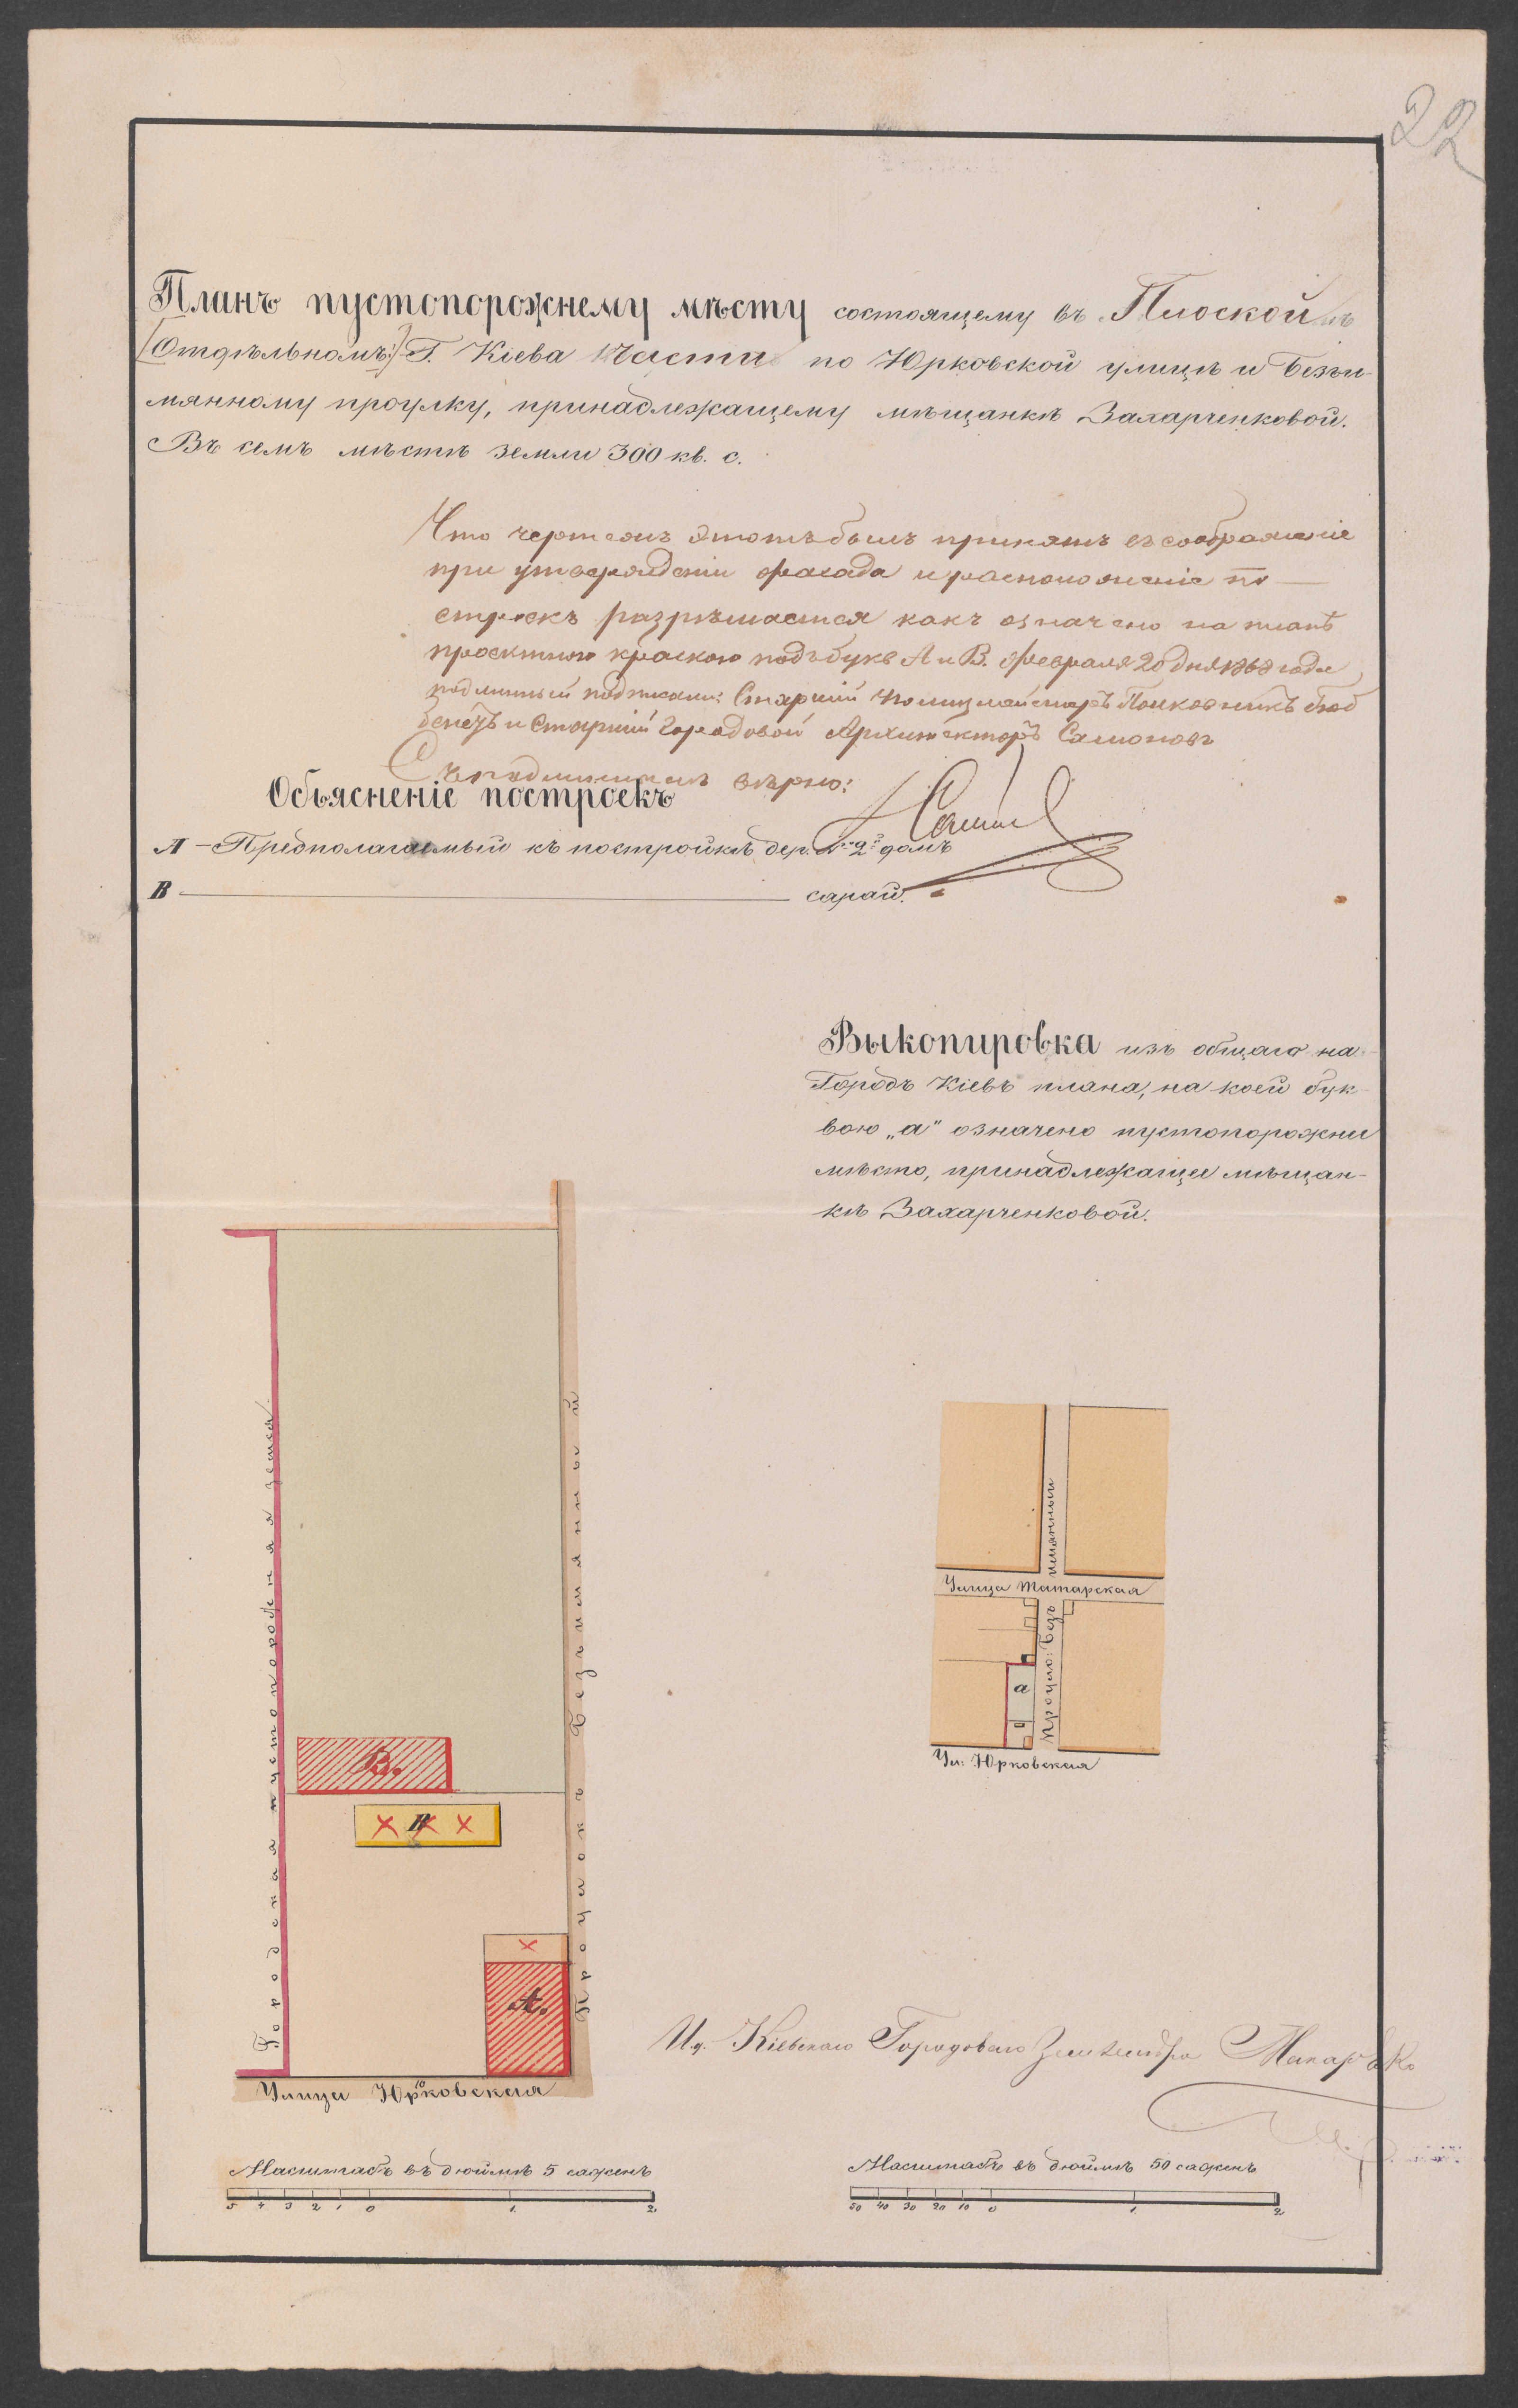 22
Планъ пустопорожнему мѣсту состоящему въ Плоской
[Отдѣльномъ] Г. Кіева части по Юрковской улицѣ и Безъи-
мянному проулку, принадлежащему мѣщанкѣ Захарченковой.
Въ семъ мѣстѣ земли 300 кв. с.
Что чертежъ этотъ былъ принятъ въ соображеніе
при утвержденіи фасада и расположеніе по-
строекъ разрѣшается какъ означено на планѣ
проектною краскою подъ букв А и В. Февраля 20 дня 1868 года
подлинный подписали: Старшій Полицмейстеръ Полковникъ
и Старшій Городовой Архитекторъ
Съ подлиннымъ вѣрно:
Объясненіе построекъ
А – Предполагаемый къ постройкѣ дер. домъ
В сарай.
Выкопировка изъ общаго на
Городъ Кіевъ плана, на коей бук-
вою „а" означено пустопорожнее
мѣсто, принадлежащее мѣщан-
кѣ Захарченковой.
Городская пустопорожняя земля.
Проулокъ Безъимянный
В.
В
А.
Улица Юрковская
Улица Татарская
Проуло: Безъ имянный
а
Ул: Юрковская
И.д. Кіевскаго Городоваго Землемѣра
Масштабъ въ дюймѣ 5 саженъ
5 4 3 2 1 0 1. 2.
Масштабъ въ дюймѣ 50 саженъ
50 40 30 20 10 0 1. 2.